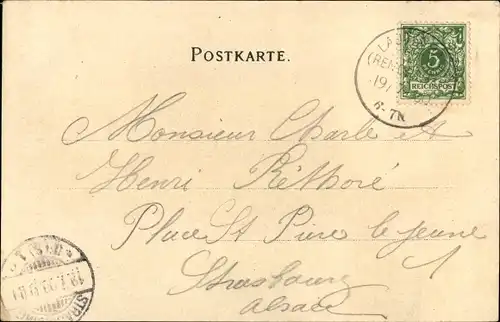 POSTKARTE.
5
REICHSPOST
19/
6-7N.
Monsieur Charle et
Henri Réthoré
Place St Pierre le jeune
1
Strasbourg
Alsace